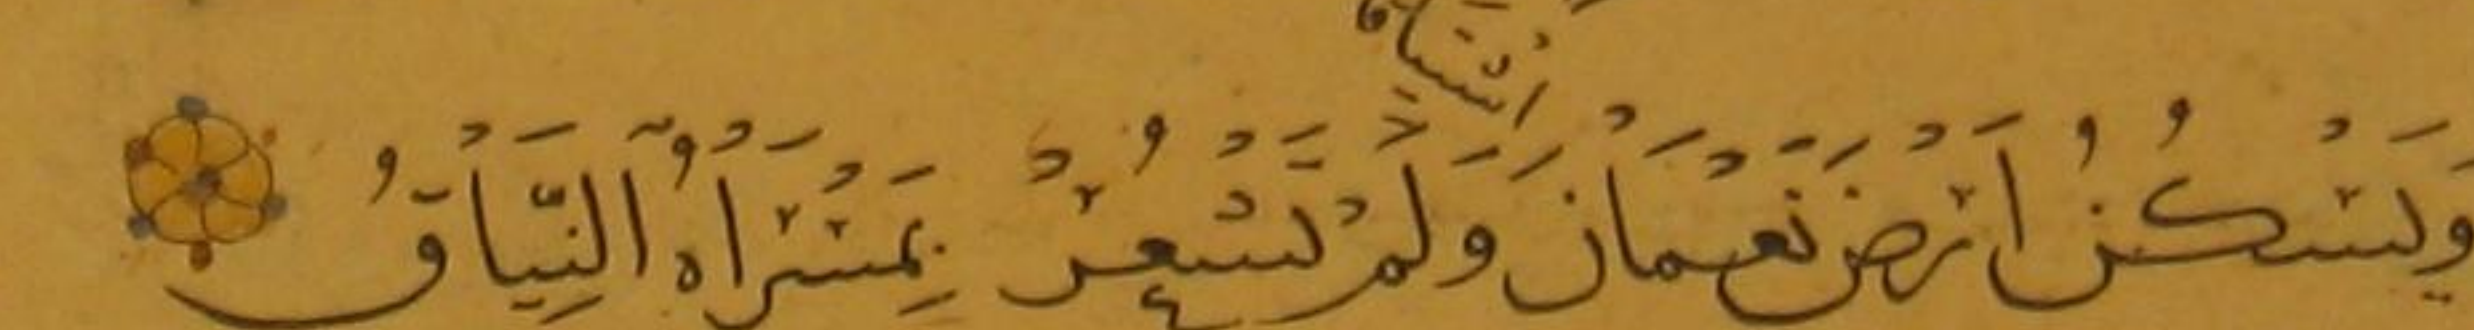 اشتياق
وَيَسْكُنُ أَرْضَ نَعْمَانَ وَلَمْ تَشْعُرْ بِمَسْرَاهُ النِّيَاقُ